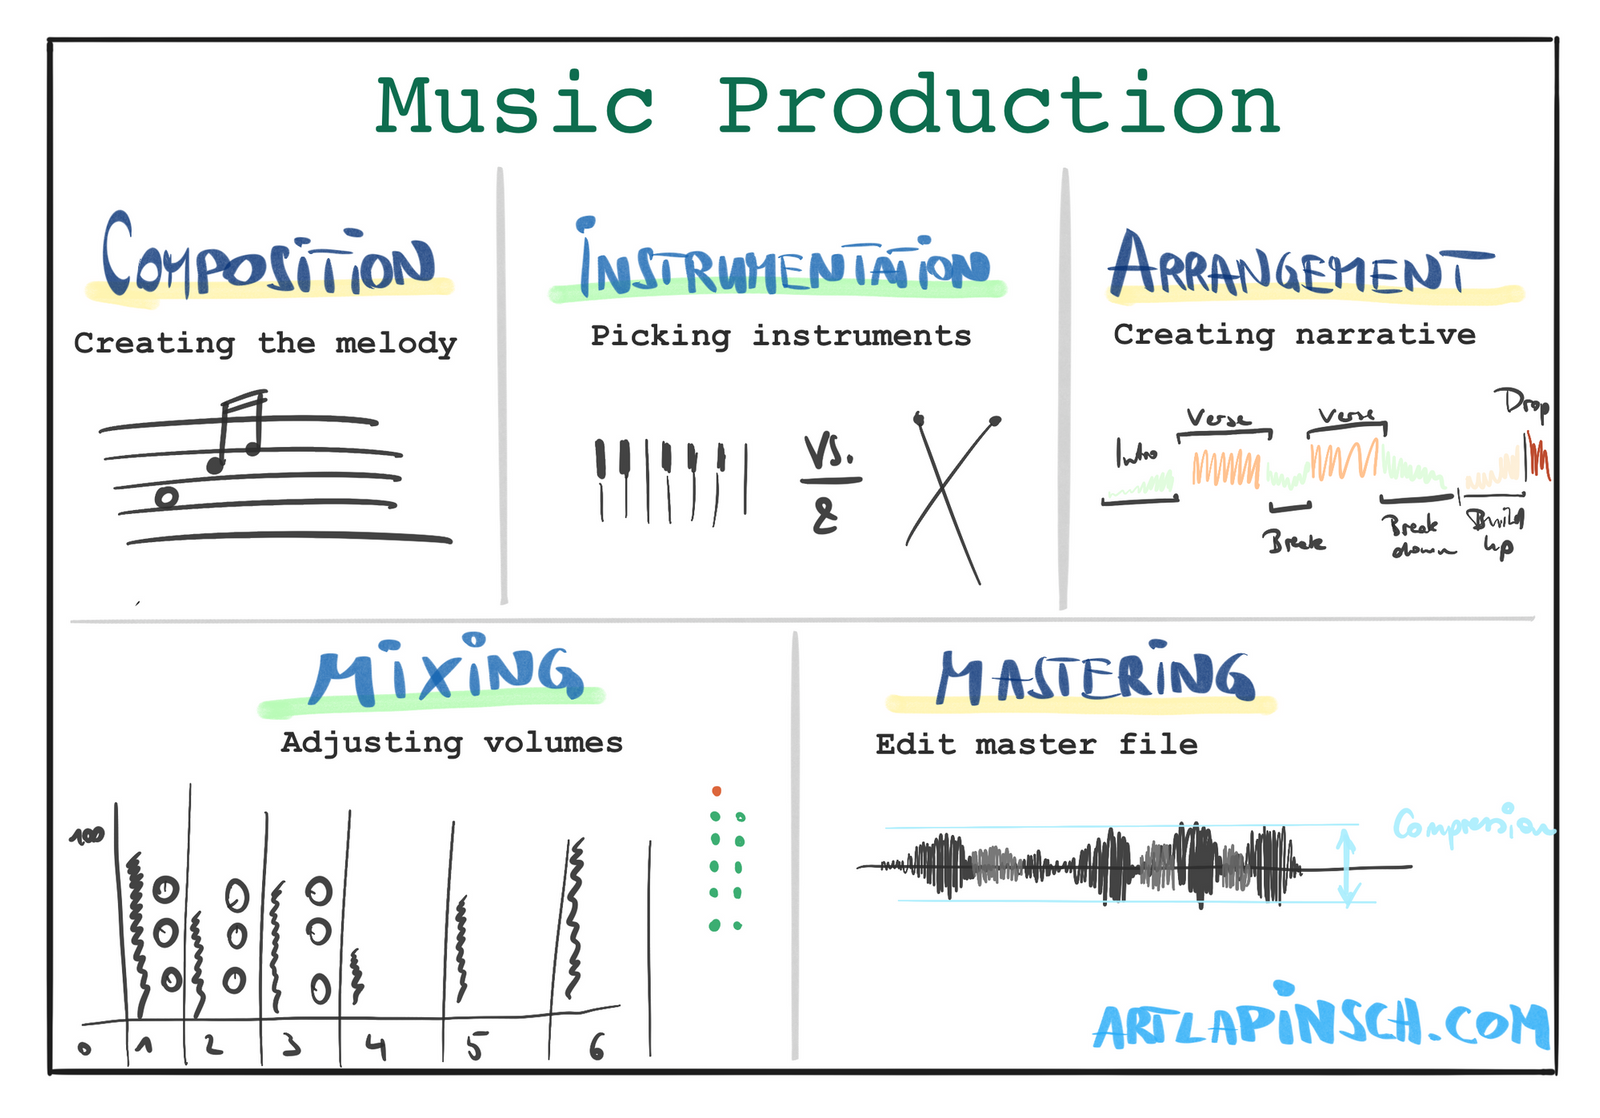 Music Production
COMPOSITION
Creating the melody
INSTRUMENTATION
Picking instruments
VS.
&
ARRANGEMENT
Creating narrative
Intro
Verse
Break
Verse
Break
down
Build
up
Drop
MIXING
Adjusting volumes
100
0 1 2 3 4 5 6
MASTERING
Edit master file
Compression
ARTLAPINSCH.COM